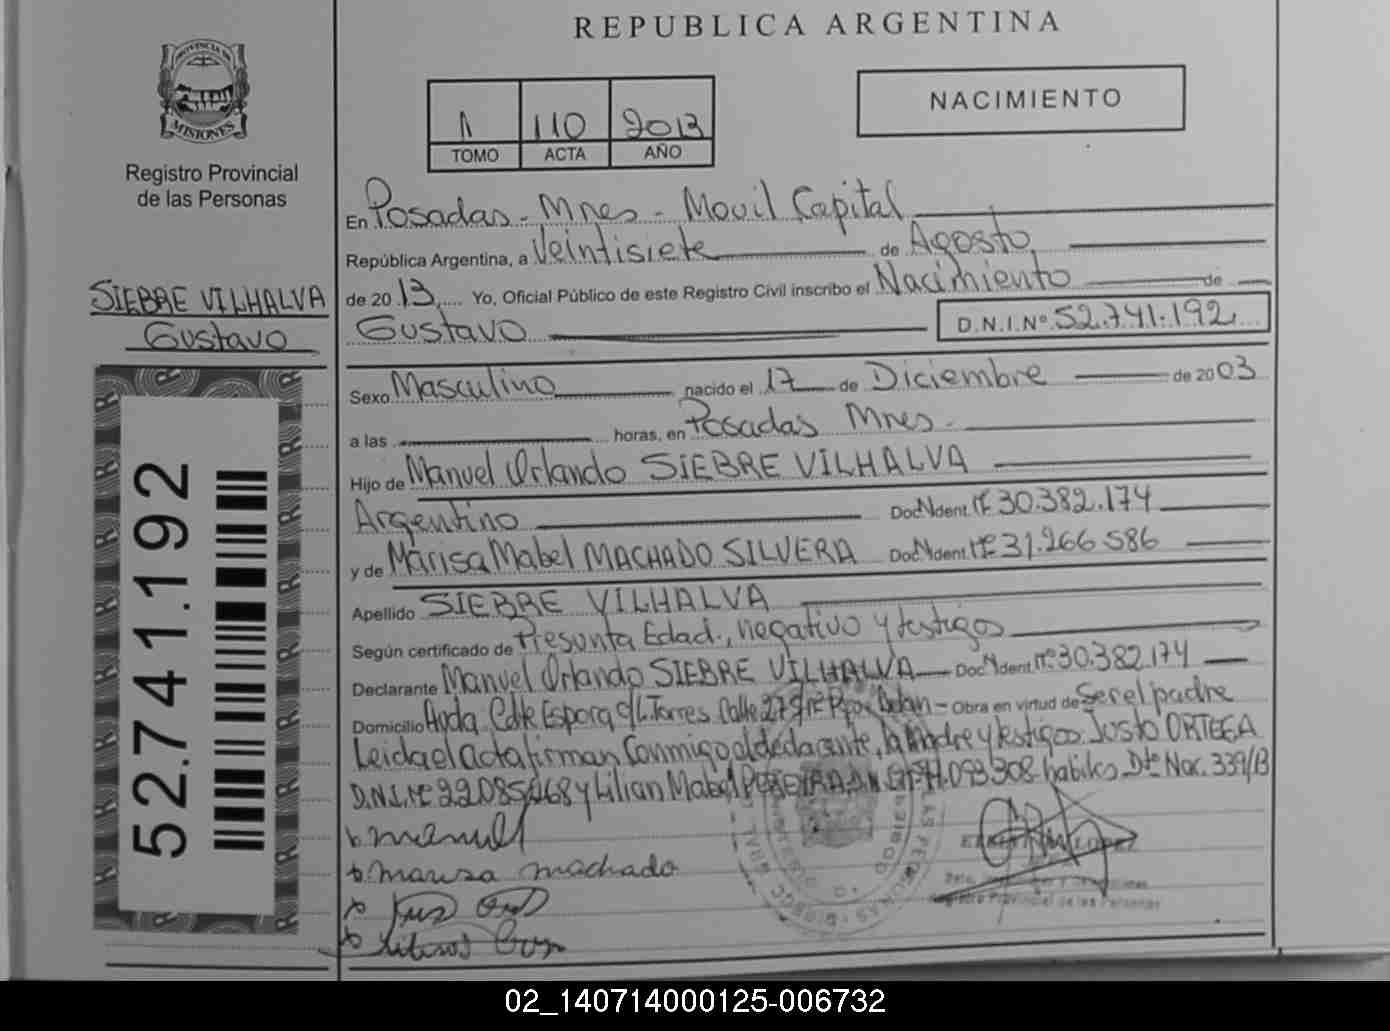 REPUBLICA ARGENTINA
PROVINCIA DE
MISIONES
Registro Provincial
de las Personas
1 110 2013
TOMO ACTA AÑO
NACIMIENTO
SIEBRE VILHALVA
Gustavo
52.741.192
En Posadas - Mnes - Movil Capital
República Argentina, a Veintisiete de Agosto
de 2013 Yo, Oficial Público de este Registro Civil inscribo el Nacimiento de
Gustavo D.N.I.Nº 52.741.192
Sexo Masculino nacido el 17 de Diciembre de 2003
a las horas, en Posadas Mnes.
Hijo de Manuel Orlando SIEBRE VILHALVA
Argentino Doc. Ident. Nº 30.382.174
y de Marisa Mabel MACHADO SILVERA Doc. Ident. Nº 31.266.586
Apellido SIEBRE VILHALVA
Según certificado de Presunta Edad, negativo y testigos
Declarante Manuel Orlando SIEBRE VILHALVA Doc. Ident. Nº 30.382.174
Domicilio Avda. Cdte Espora c/L. Torres Calle 279 Obra en virtud de Ser el padre
Leida el Acta firman Conmigo el declarante, la Madre y testigos: Justo ORTEGA
D.N.I. Nº y Lilian Mabel PEREIRA 093.308 habiles Dto Nac. 339/13
manuel
marisa machado
LOPEZ
Registro Provincial de las Personas
02_140714000125-006732